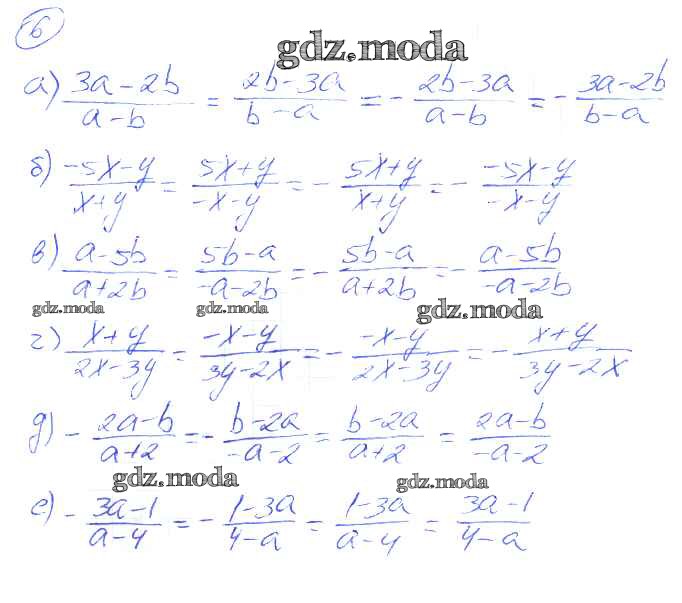 6
gdz.moda
а) (3a-2b)/(a-b) = (2b-3a)/(b-a) = -(2b-3a)/(a-b) = -(3a-2b)/(b-a)
б) (-5x-y)/(x+y) = (5x+y)/(-x-y) = -(5x+y)/(x+y) = -(-5x-y)/(-x-y)
в) (a-5b)/(a+2b) = (5b-a)/(-a-2b) = -(5b-a)/(a+2b) = -(a-5b)/(-a-2b)
gdz.moda gdz.moda gdz.moda
г) (x+y)/(2x-3y) = (-x-y)/(3y-2x) = -(-x-y)/(2x-3y) = -(x+y)/(3y-2x)
д) -(2a-b)/(a+2) = -(b-2a)/(-a-2) = (b-2a)/(a+2) = (2a-b)/(-a-2)
gdz.moda gdz.moda
е) -(3a-1)/(a-4) = -(1-3a)/(4-a) = (1-3a)/(a-4) = (3a-1)/(4-a)